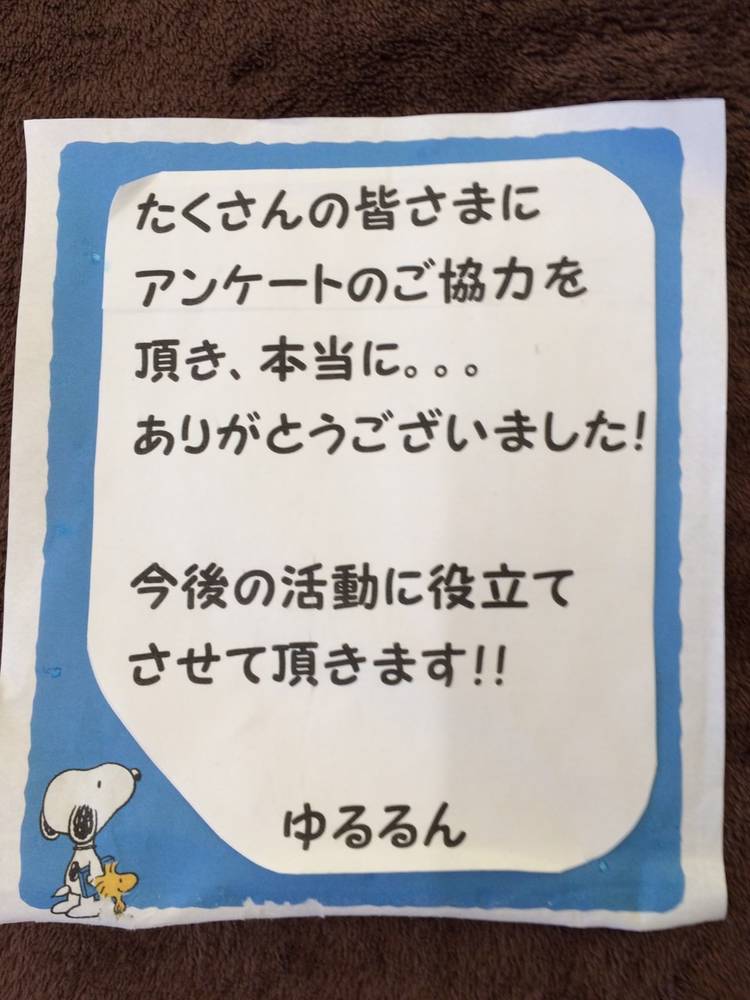 たくさんの皆さまに
アンケートのご協力を
頂き、本当に。。。
ありがとうございました!
今後の活動に役立て
させて頂きます!!
ゆるるん